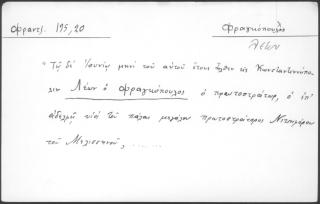 Φραντζ. 195,20
Φραγκόπουλος
Λέων
"Τῷ δὲ Ἰουνίῳ μηνὶ τοῦ αὐτοῦ ἔτους ἦλθεν εἰς Κωνσταντινούπο
λιν Λέων ὁ Φραγκόπουλος ὁ πρωτοστράτωρ, ὁ ἐπ'
ἀδελφῇ υἱὸς τοῦ πάλαι μεγάλου πρωτοστράτορος Νικηφόρου
τοῦ Μελισσηνοῦ,